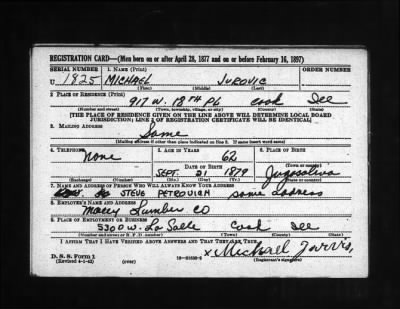 REGISTRATION CARD—(Men born on or after April 28, 1877 and on or before February 16, 1897)
SERIAL NUMBER 1. NAME (Print) ORDER NUMBER
U 1825 MICHAEL JUROVIC
(First) (Middle) (Last)
2. PLACE OF RESIDENCE (Print)
917 W. 18TH PL COOK ILL
(Number and street) (Town, township, village, or city) (County) (State)
[THE PLACE OF RESIDENCE GIVEN ON THE LINE ABOVE WILL DETERMINE LOCAL BOARD
JURISDICTION; LINE 2 OF REGISTRATION CERTIFICATE WILL BE IDENTICAL]
3. MAILING ADDRESS
Same
[Mailing address if other than place indicated on line 2. If same insert word same]
4. TELEPHONE 5. AGE IN YEARS 6. PLACE OF BIRTH
none 62
DATE OF BIRTH (Town or county)
SEPT. 21 1879 Jugoslavia
(Exchange) (Number) (Mo.) (Day) (Yr.) (State or country)
7. NAME AND ADDRESS OF PERSON WHO WILL ALWAYS KNOW YOUR ADDRESS
STEVE PETROVICH same address
8. EMPLOYER'S NAME AND ADDRESS
Lumber CO
9. PLACE OF EMPLOYMENT OR BUSINESS
5300 W. La Salle Cook Ill
(Number and street or R. F. D. number) (Town) (County) (State)
I AFFIRM THAT I HAVE VERIFIED ABOVE ANSWERS AND THAT THEY ARE TRUE.
D. S. S. Form 1
(Revised 4-1-42) (over) x Michael
(Registrant's signature)